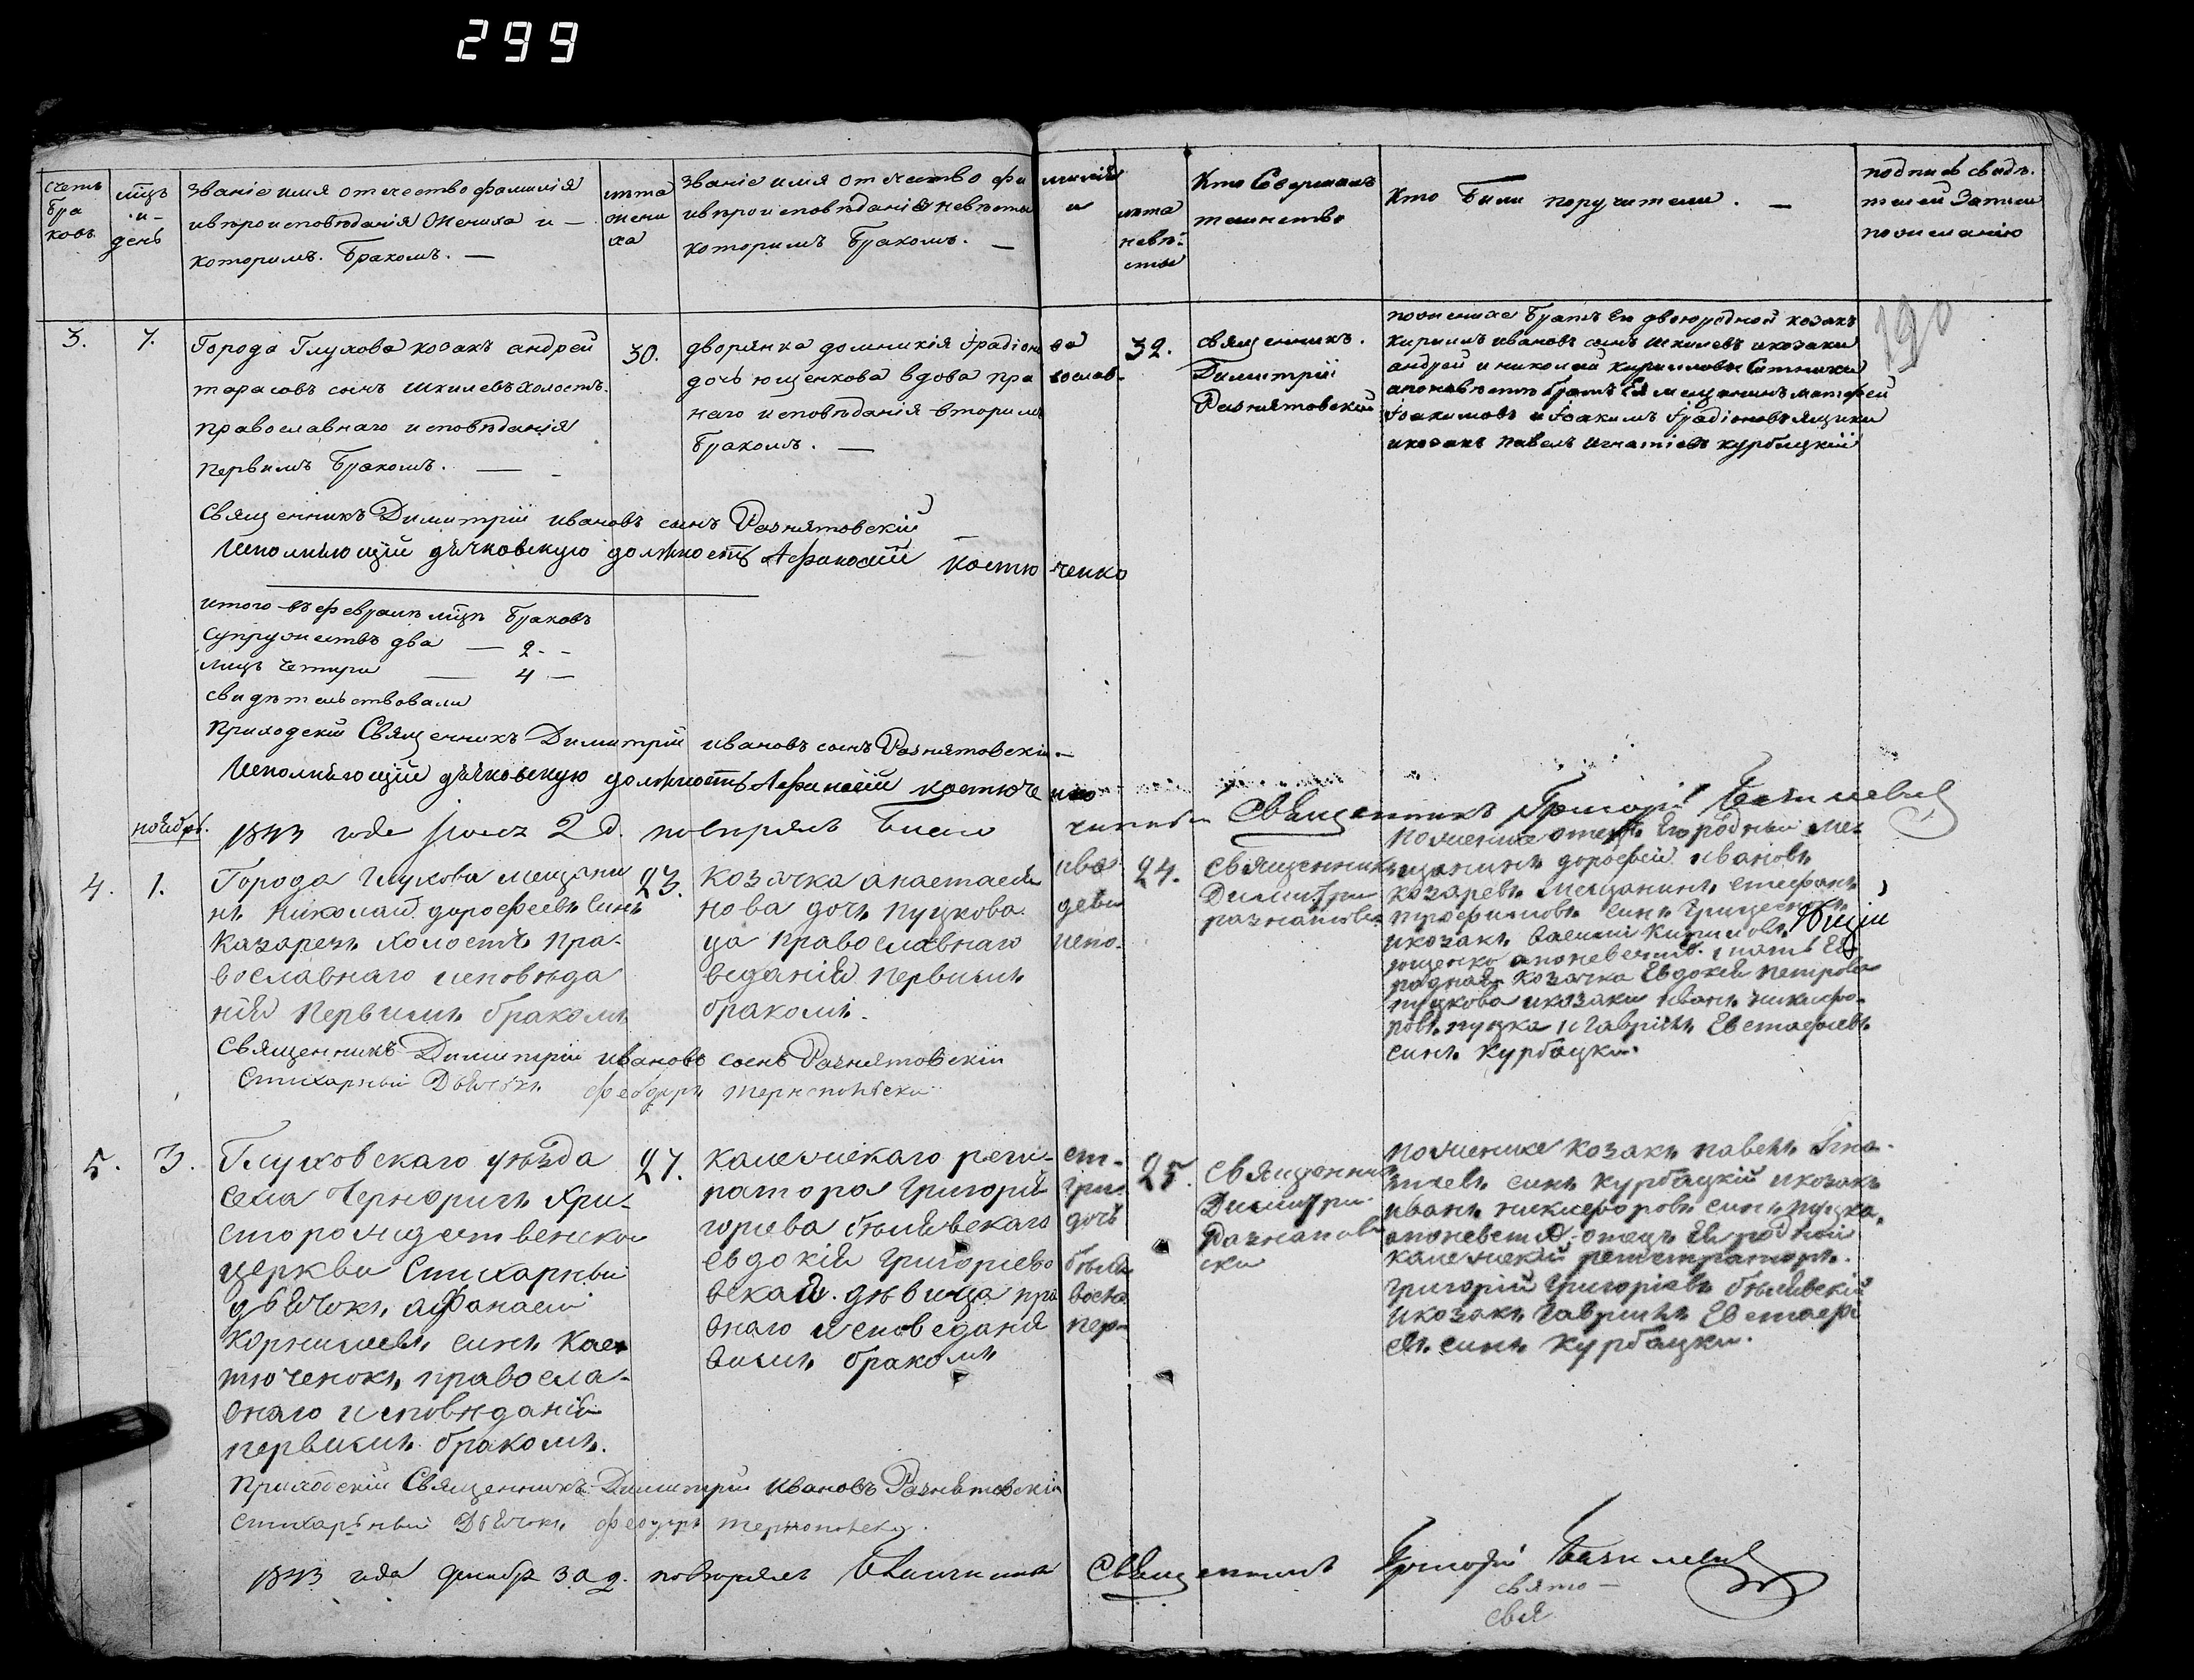 299
счетъ браковъ
мцъ и день
званіе имя отчество фамилія
ивпроисповѣданія жениха и —
которимъ бракомъ. —
лѣта жениха
званіе имя отчество фамилія
ивпроисповѣданія невѣсты и
которимъ бракомъ. —
лѣта невѣсты
Кто Совершалъ
таинство
Кто Были поручители. —
подпись свидѣ-
телей записи
пожеланію
190
3.
7.
Города Глухова козакъ андрей
тарасовъ сынъ шкилевъ холостъ.
православнаго исповѣданія
первимъ бракомъ. —
30.
дворянка домникія Ірадіонова
дочь ющенкова вдова православ-
наго исповѣданія вторимъ
бракомъ. —
32.
священникъ.
Димитрій
Разнятовскій
поженихѣ братъ Ея двоюродной козакъ
Кириллъ ивановъ сынъ шкилевъ икозаки
андрей и николай Кирилловы
апоневѣсте братъ Ея мещанинъ матфей
Іоакимовъ и Іоакимъ Ірадіоновъ ящики
икозакъ павелъ игнатіевъ курбацкій
Священникъ Димитрій ивановъ сынъ Разнятовскій
Исполняющій дячковскую должность Афанасій Костюченко
итого въ февралѣ мцѣ браковъ
супружествъ два — 2. —
лицъ четири — 4 —
свидѣтельствовали
приходскій Священникъ Димитрій ивановъ сынъ Разнятовскій
Исполняющій дячковскую должность Афанасій костюченко
1843 года 2 д. повѣрялъ Священникъ Григорій
ноября.
4.
1.
Города Глухова мещани
нъ николай дорофеевъ синъ
казаречъ холостъ пра-
вославнаго исповѣда
нія первимъ бракомъ
23.
козачка анастасія ива
нова дочь пуцкова деви
ца православнаго испо.
веданія первимъ
бракомъ.
24.
священникъ
Димитрій
разнятовск
поженихе отецъ Его родный ме
щанинъ дорофей ивановъ
козаревъ мещанинъ стефанъ
трофимовъ синъ
икозакъ василій Кириловъ
ющенко апоневесте мать Ея
родная козачка Евдокія петрова
пуцкова икозаки иванъ никифо-
ровъ пуцка и Гавріилъ Евстафіевъ
синъ курбацки.
Священникъ Димитрій ивановъ сынъ Разнятовскій
Стихарный Дьячокъ феодоръ тернопольски
5.
3.
Глуховскаго уѣзда
села Чернориги Хри-
сторождественской
церкви Стихарный
дьячокъ афанасій
корнилиевъ синъ Кос
тюченокъ, правосла-
внаго исповѣданія
первимъ бракомъ.
27.
калежскаго реги-ст-
ратора Григорія григ
горіева бѣлявскаго дочь
евдокія григоріева бѣля
вская. дѣвица пра восла
внаго исповеданія пер-
вимъ бракомъ
25.
священник
Димитри
Разнатов
ски
поженихе козакъ павелъІгна-
тиевъ синъ курбацкій икозакъ
иванъ никифоровъ синъ пуцка,
апоневестѣ, отецъ Ея родной
калежскій регистраторъ.
григорій григоріевъ бѣлявскій
икозакъ гавриилъ Евстафі
евъ синъ курбацки.
приходскій Священникъ Димитрій ивановъ Разнятовскій
стихарный Дьячокъ феодоръ тернопольски.
1843 года декабря 30 д. повѣрялъ Священникъ Григорій
свято —
свя